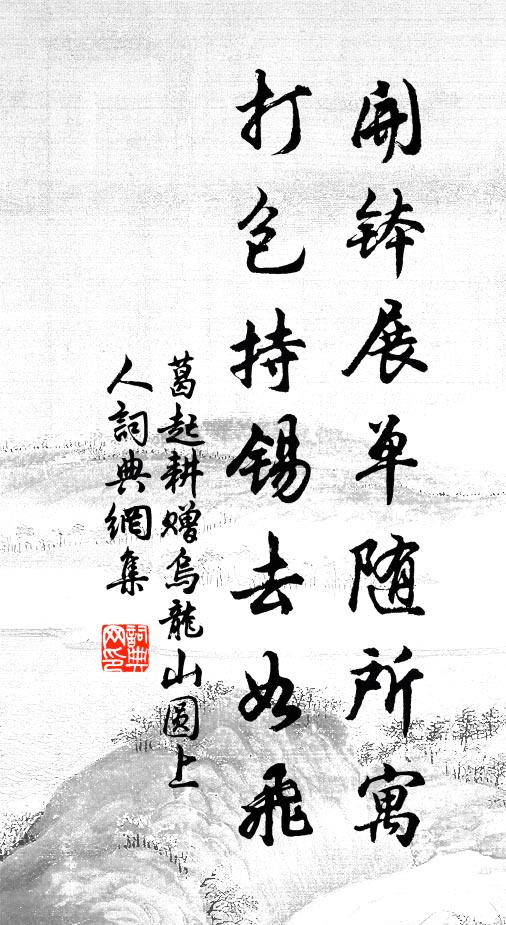 開鉢展单随所寓
打包持錫去如飛
葛起耕贈烏龍山圆上
人詞典網集
詞典
网印